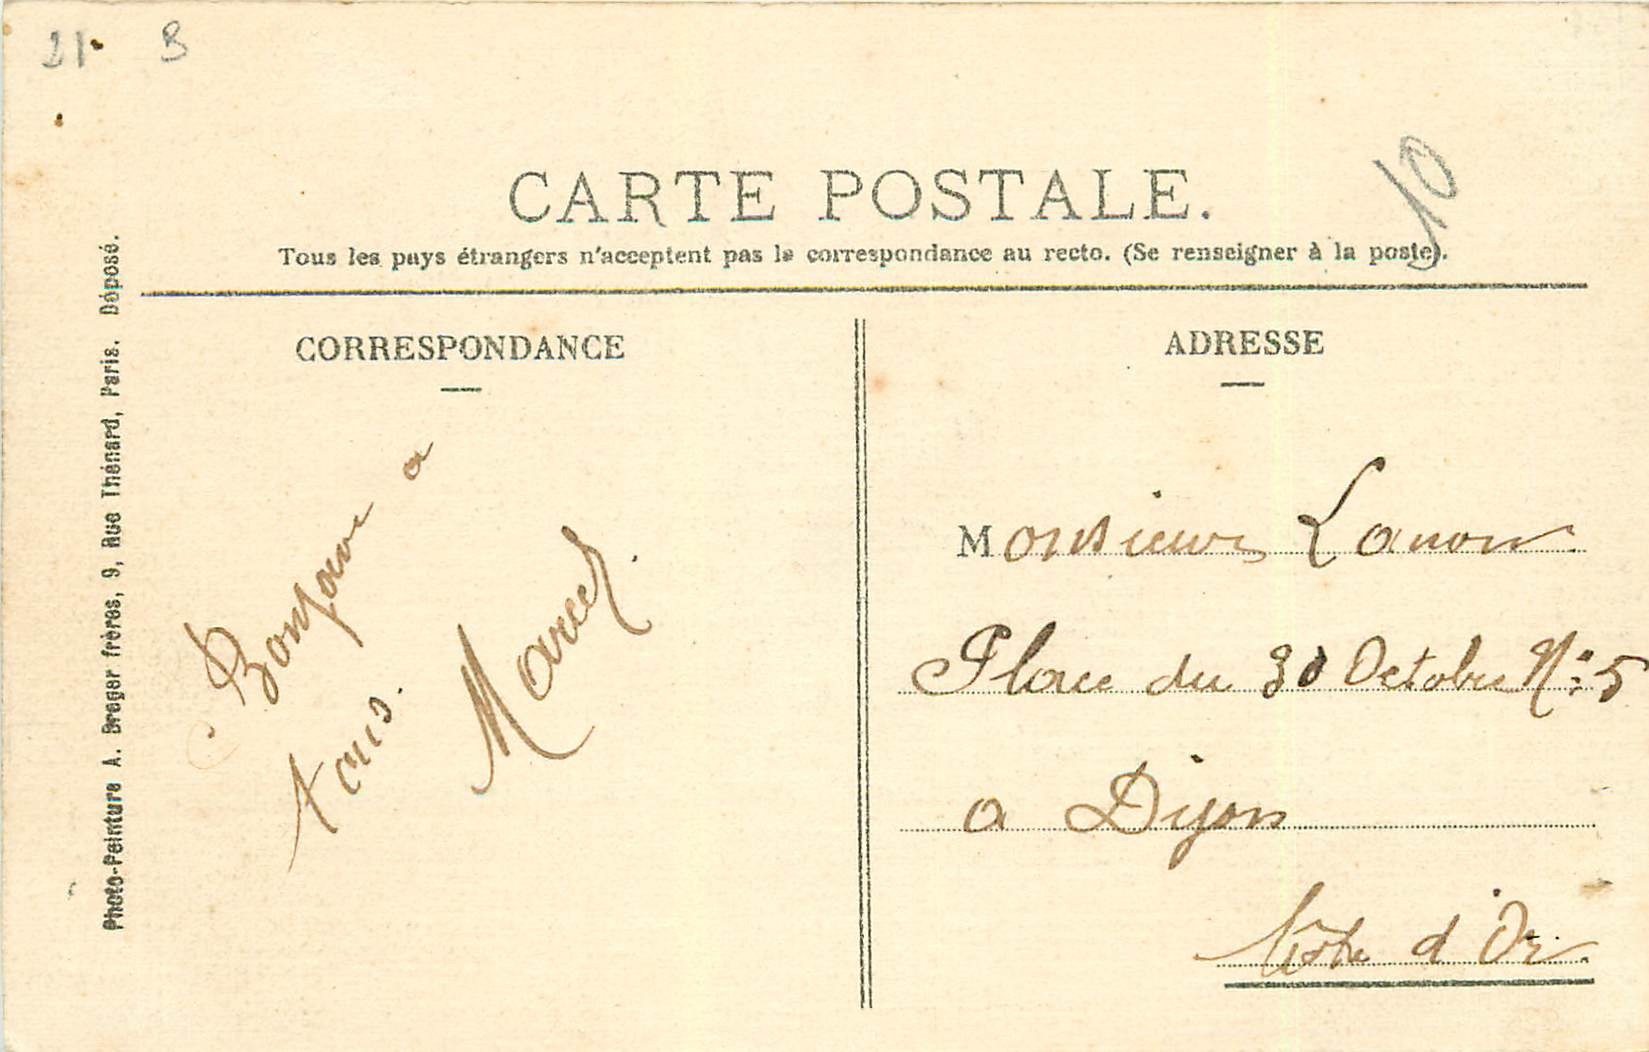 21 B
10
CARTE POSTALE.
Tous les pays étrangers n'acceptent pas la correspondance au recto. (Se renseigner à la poste).
CORRESPONDANCE
Bonjour a
tous.
Marcel.
ADRESSE
Monsieur Lanoir
Place du 30 Octobre N: 5
a Dijon
Côte d'Or.
Photo-Peinture A. Breger frères, 9, Rue Thénard, Paris. Déposé.